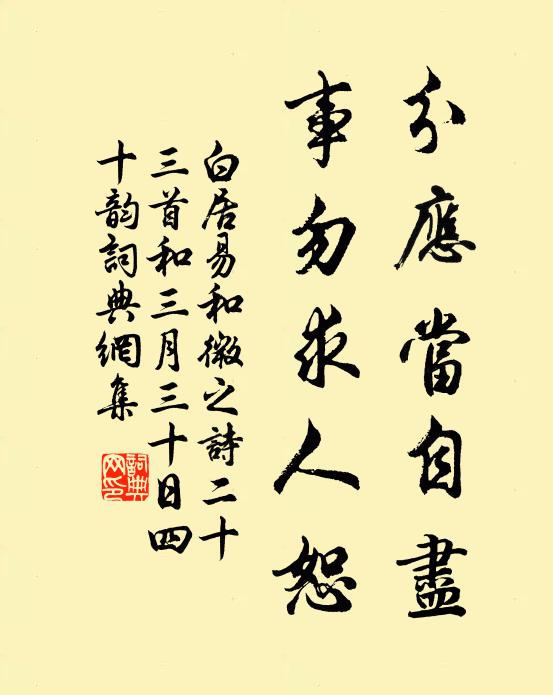 分應當自盡
事勿求人恕
白居易和微之詩二十
三首和三月三十日四
十韵詞典網集
詞典
网印